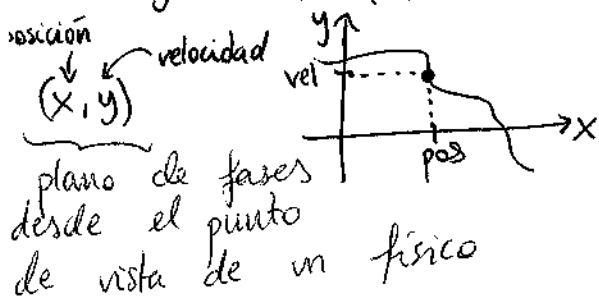 posición
velocidad
(x, y)
plano de fases
desde el punto
de vista de un físico
y
vel
pos
x